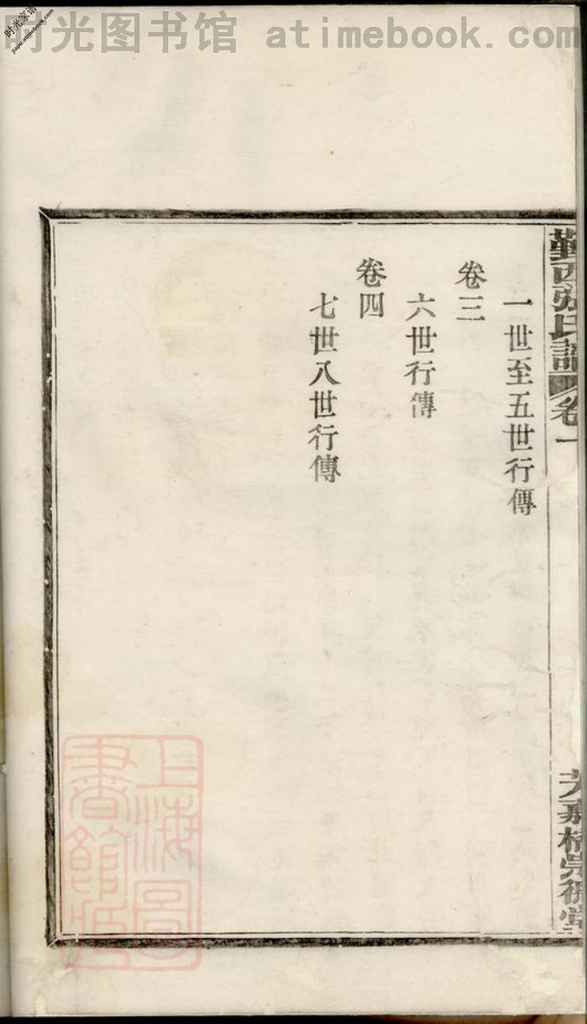 时光图书馆 atimebook.com
一世至五世行傳
卷三
六世行傳
卷四
七世八世行傳
張氏譜
卷一
上海圖
書館藏